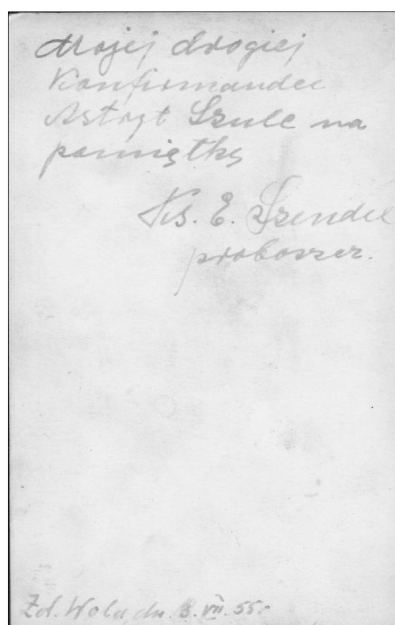 Mojej drogiej
Konfirmandce
Astryt Szulc na
pamiątkę
Ks. E. Szendel
proboszcz.
Zd. Wola, dn. 3. VII. 55.